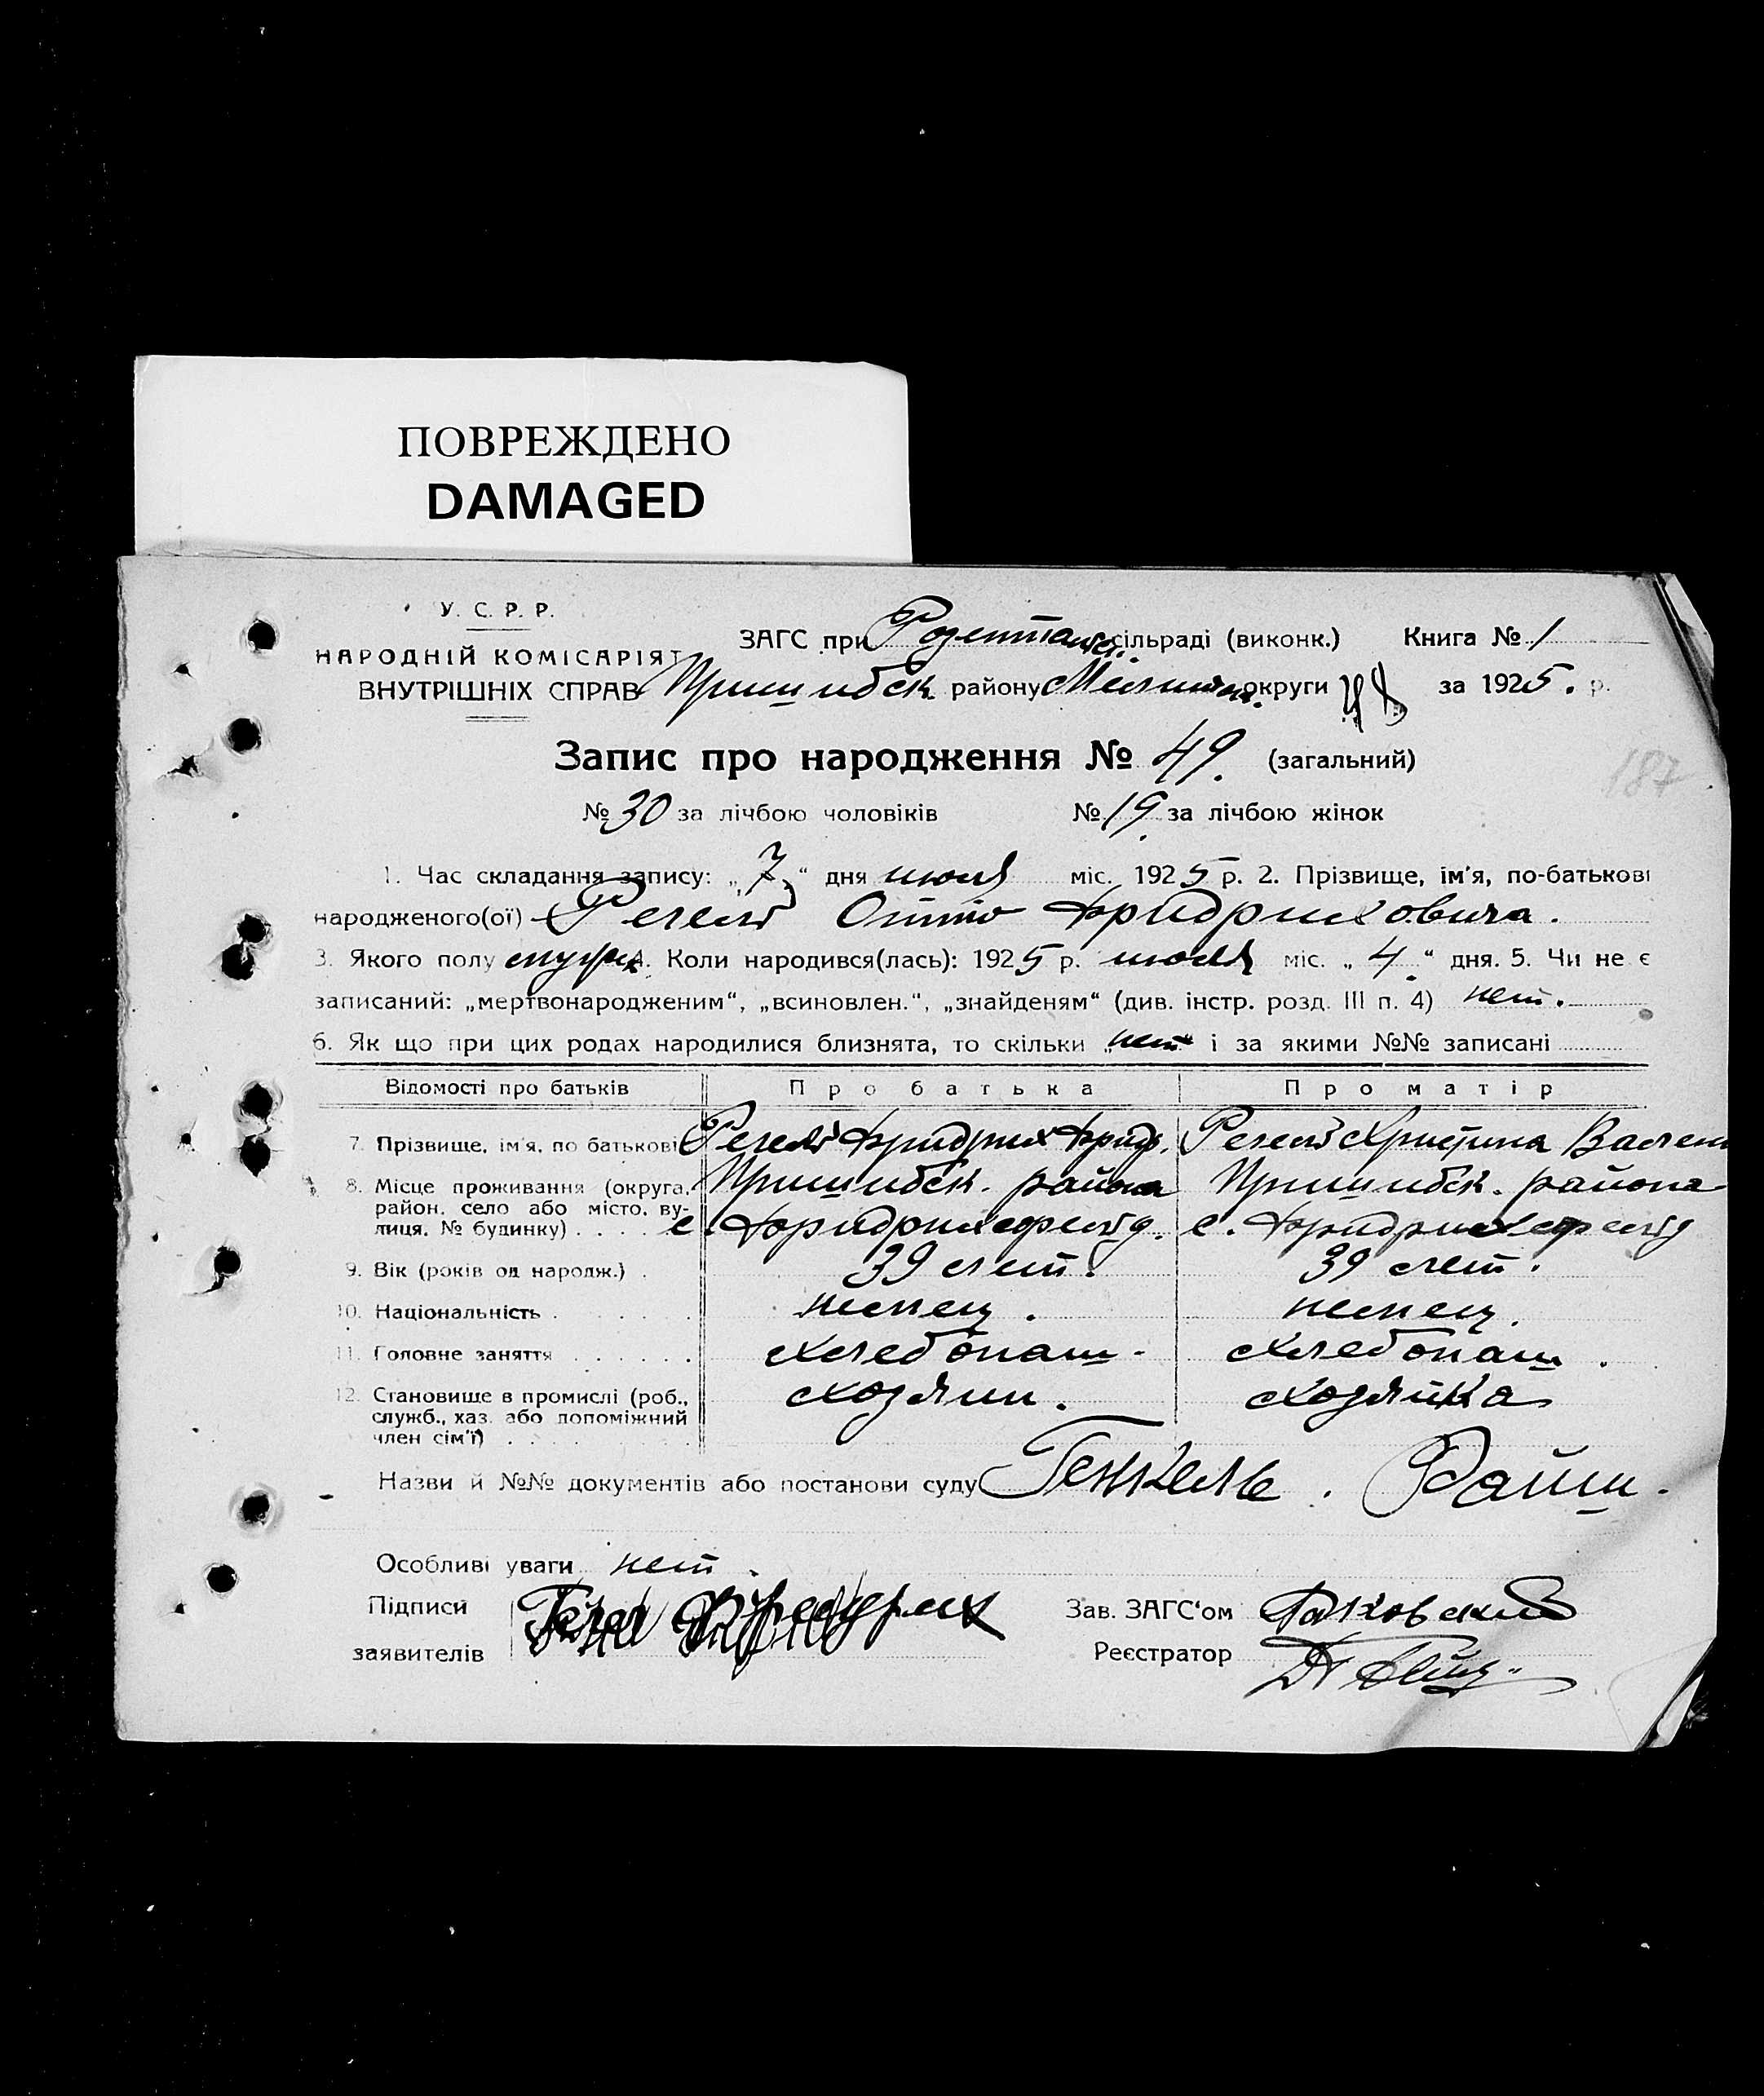 ПОВРЕЖДЕНО
DAMAGED
У. С. Р. Р.
НАРОДНІЙ КОМІСАРІЯТ
ВНУТРІШНІХ СПРАВ
ЗАГС при Розентальск. сільраді (виконк.) Книга № 1
Пришибск. району Мелитоп. округи за 1925. р.
Запис про народження № 49. (загальний)
187
№ 30 за лічбою чоловіків № 19 за лічбою жінок
1. Час складання запису: „7“ дня июля міс. 1925 р. 2. Прізвище, ім'я, по-батькові
народженого(ої) Отто Фридрихович.
3. Якого полу мужск. 4. Коли народився(лась): 1925 р. июля міс. „4“ дня. 5. Чи не є
записаний: „мертвонародженим“, „всиновлен.“, „знайденям“ (див. інстр. розд. III п. 4) нет.
6. Як що при цих родах народилися близнята, то скільки „нет“ і за якими №№ записані
Відомості про батьків Про батька Про матір
7. Прізвище, ім'я, по батькові Фридрих Фрид. Христина
8. Місце проживання (округа, Пришибск. района Пришибск. района
район, село або місто, ву-
лиця, № будинку) . . . . с. Фридрихсфельд. с. Фридрихсфельд
9. Вік (років од народж.) . 39 лет. 39 лет.
10. Національність . . . . . немец. немец.
11. Головне заняття . . . . . . хлебопаш. хлебопаш.
12. Становище в промислі (роб., хозяин. хозяйка
служб., хаз. або допоміжний
член сім'ї) . . . . .
Назви й №№ документів або постанови суду Генкель. Файш.
Особливі уваги нет.
Підписи
заявителів
Фридрих
Зав. ЗАГС'ом Раковский
Реєстратор